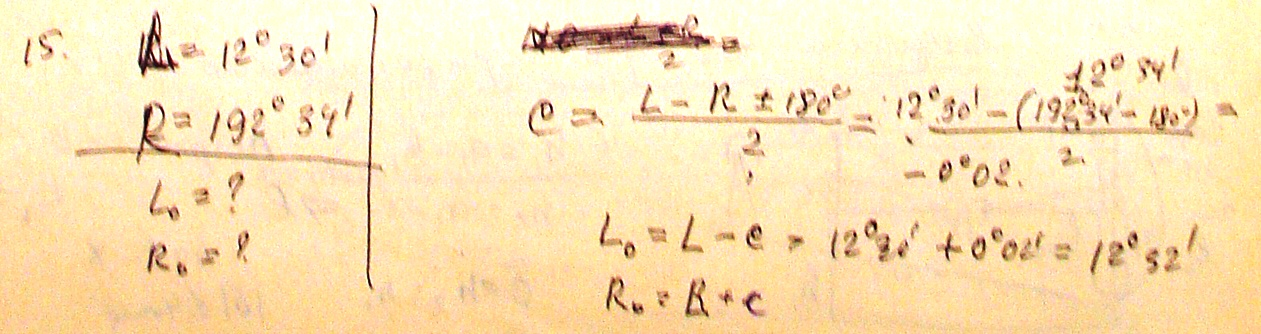 15. L = 12° 30'
R = 192° 34'
L₀ = ?
R₀ = ?
12° 34'
c = (L - R ± 180°) / 2 = (12° 30' - (192° 34' - 180°)) / 2 =
- 0° 02.
L₀ = L - c = 12° 30' + 0° 02' = 12° 32'
R₀ = R + c